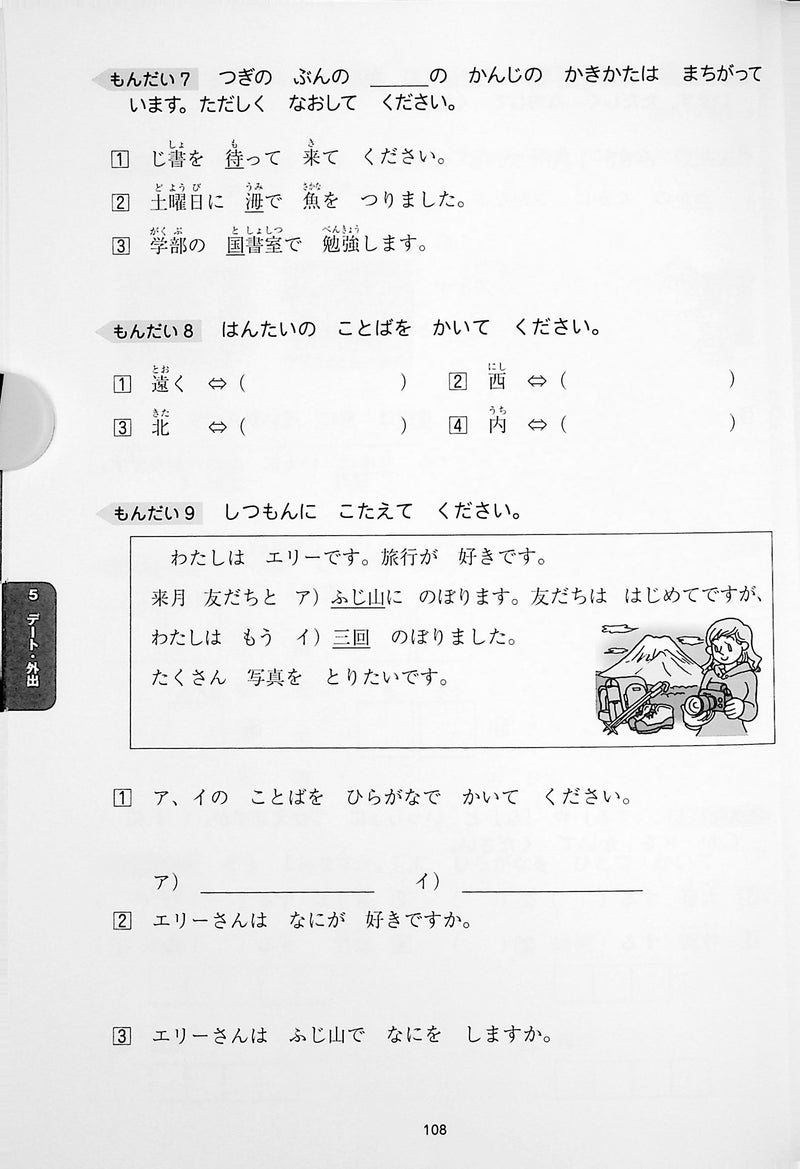 もんだい7 つぎの ぶんの ＿＿＿の かんじの かきかたは まちがって
います。ただしく なおして ください。
1 じ書しょを 待もって 来きて ください。
2 土ど曜よう日びに 海うみで 魚さかなを つりました。
3 学がく部ぶの 国と書しょ室しつで 勉べん強きょうします。
もんだい8 はんたいの ことばを かいて ください。
1 遠とおく ⇔ ( ) 2 西にし ⇔ ( )
3 北きた ⇔ ( ) 4 内うち ⇔ ( )
もんだい9 しつもんに こたえて ください。
わたしは エリーです。旅行が 好きです。
来月 友だちと ア）ふじ山に のぼります。友だちは はじめてですが、
わたしは もう イ）三回 のぼりました。
たくさん 写真を とりたいです。
5 デート・外出
1 ア、イの ことばを ひらがなで かいて ください。
ア）＿＿＿＿＿＿ イ）＿＿＿＿＿＿
2 エリーさんは なにが 好きですか。
3 エリーさんは ふじ山で なにを しますか。
108